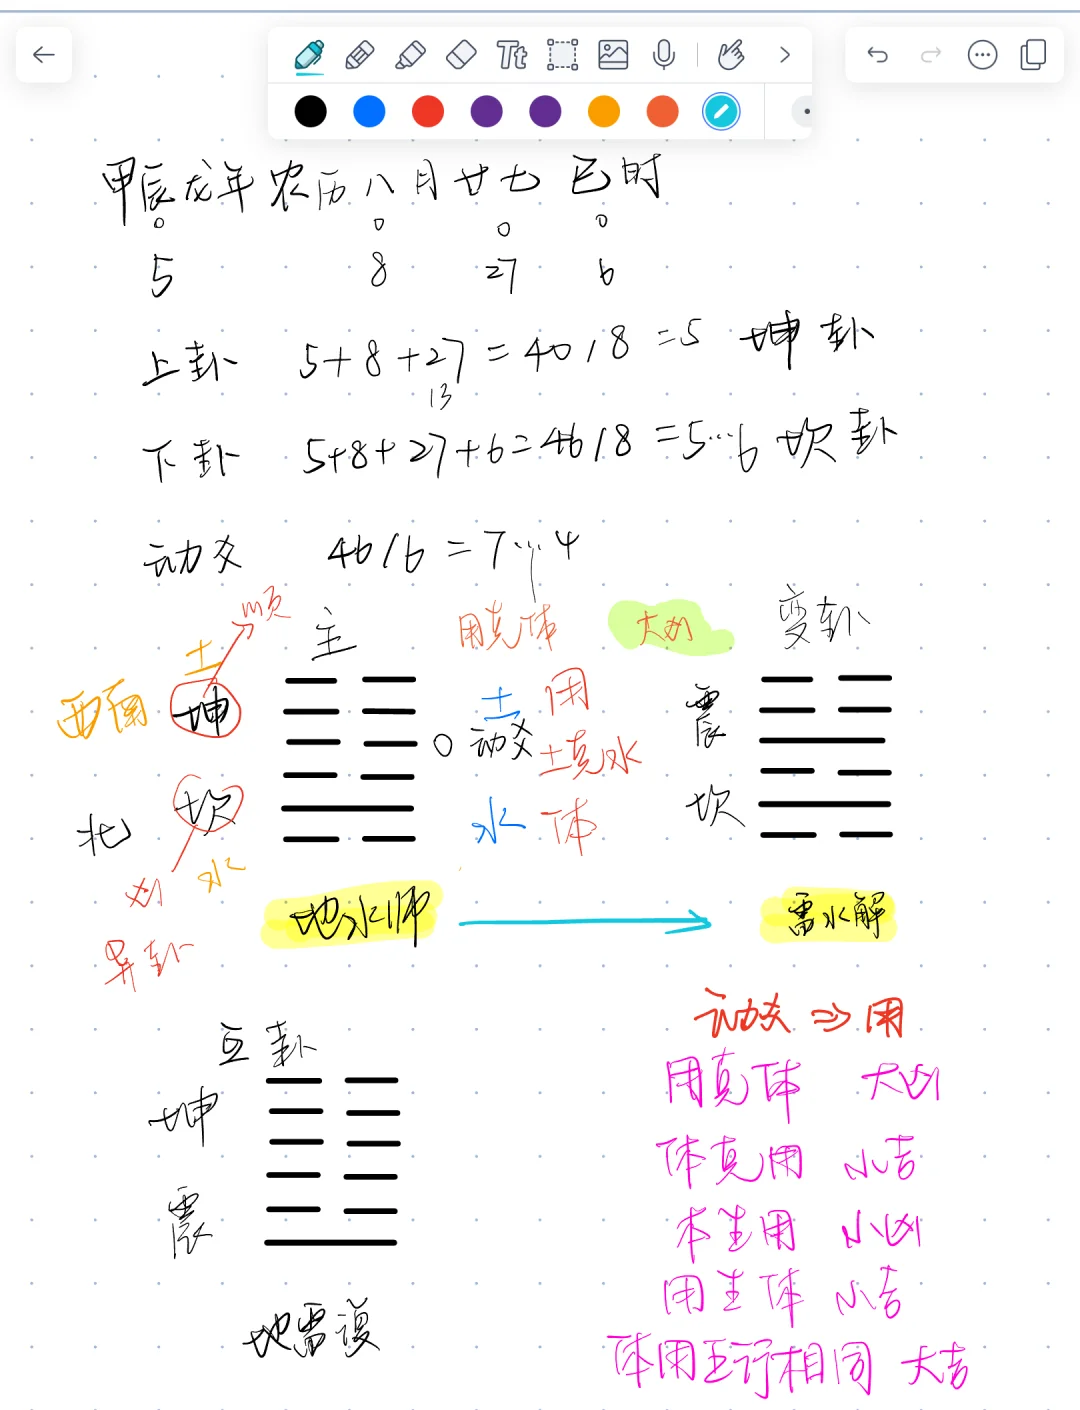 Tt
甲辰龙年 农历八月廿七 巳时
5 8 27 6
上卦 5+8+27=40/8=5 坤卦
13
下卦 5+8+27+6=46/8=5…6 坎卦
动爻 46/6=7…4
顺 主 用克体 大凶 变卦
土
西南 坤 土 用 震
动爻 土克水
北 坎 水 体 坎
凶 水
地水师 雷水解
异卦
动爻⇒用
互卦
用克体 大凶
坤
体克用 小吉
震 本生用 小凶
用生体 小吉
地雷復
体用五行相同 大吉